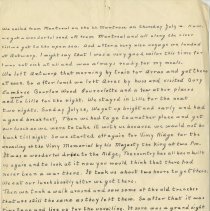 We sailed from Montreal on the SS Montrose, on Thursday July 16 A.M.
we got a wonderful send off from Montreal and all along the river
till we got to the open sea. And after a very nice voyage we landed
at Antwerp. I might say that I was a very good sailor this time for
I was not sick at all and was always ready for my meals.
We left Antwerp that morning by train for Arras and got there
at noon. So after lunch we left Arras by bus and visited Vimy
Cambrai Bourlon Wood Bourcelette and a few other places
and to Lille for the night. We stayed in Lille for the next
two nights. Sunday July 26, We got up bright and early and had
a good breakfast, Then we had to go to another place and get
our lunch as we were to take it with us because we would not be
back till night. So we started off again for Vimy Ridge for the
unveiling of the Vimy Memorial by his Majesty the King of England.
It was a wonderful to see the Ridge, The country has all been built
up again and to look at it now you would think that there had
never been a war there. It took us about two hours to get there,
we eat our lunch shortly after we got there.
Then we took a walk around and saw some of the old trenches
that are still the same as they left them. So after that it was
time to go and line up for the unveiling. It sure was a grand sight